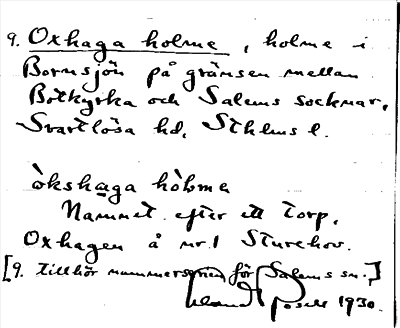 9. Oxhaga holme, holme i
Bornsjön på gränsen mellan
Botkyrka och Salems socknar,
Svartlösa hd, Sthlms l.
òkshaga hòlme
Namnet efter ett torp,
Oxhagen å nr. 1 Sturehov.
[9. tillhör nummerserien för Salems sn.]
1930.